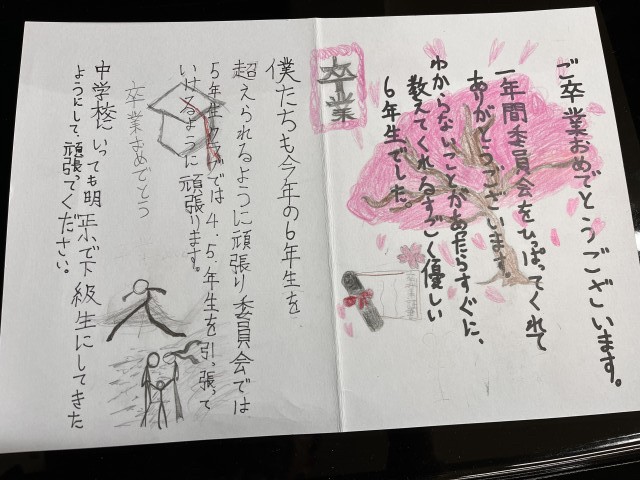 ご卒業おめでとうございます。
一年間委員会をひっぱってくれて
ありがとうございます。
わからないことがあったらすぐに、
教えてくれるすごく優しい
6年生でした。
卒業
僕たちも今年の6年生を
超えられるように頑張り委員会では
5年生クラブでは4.5.年生を引っ張って
いけるように頑張ります。
卒業おめでとう
中学校にいっても明正小で下級生にしてきた
ようにして、頑張ってください。